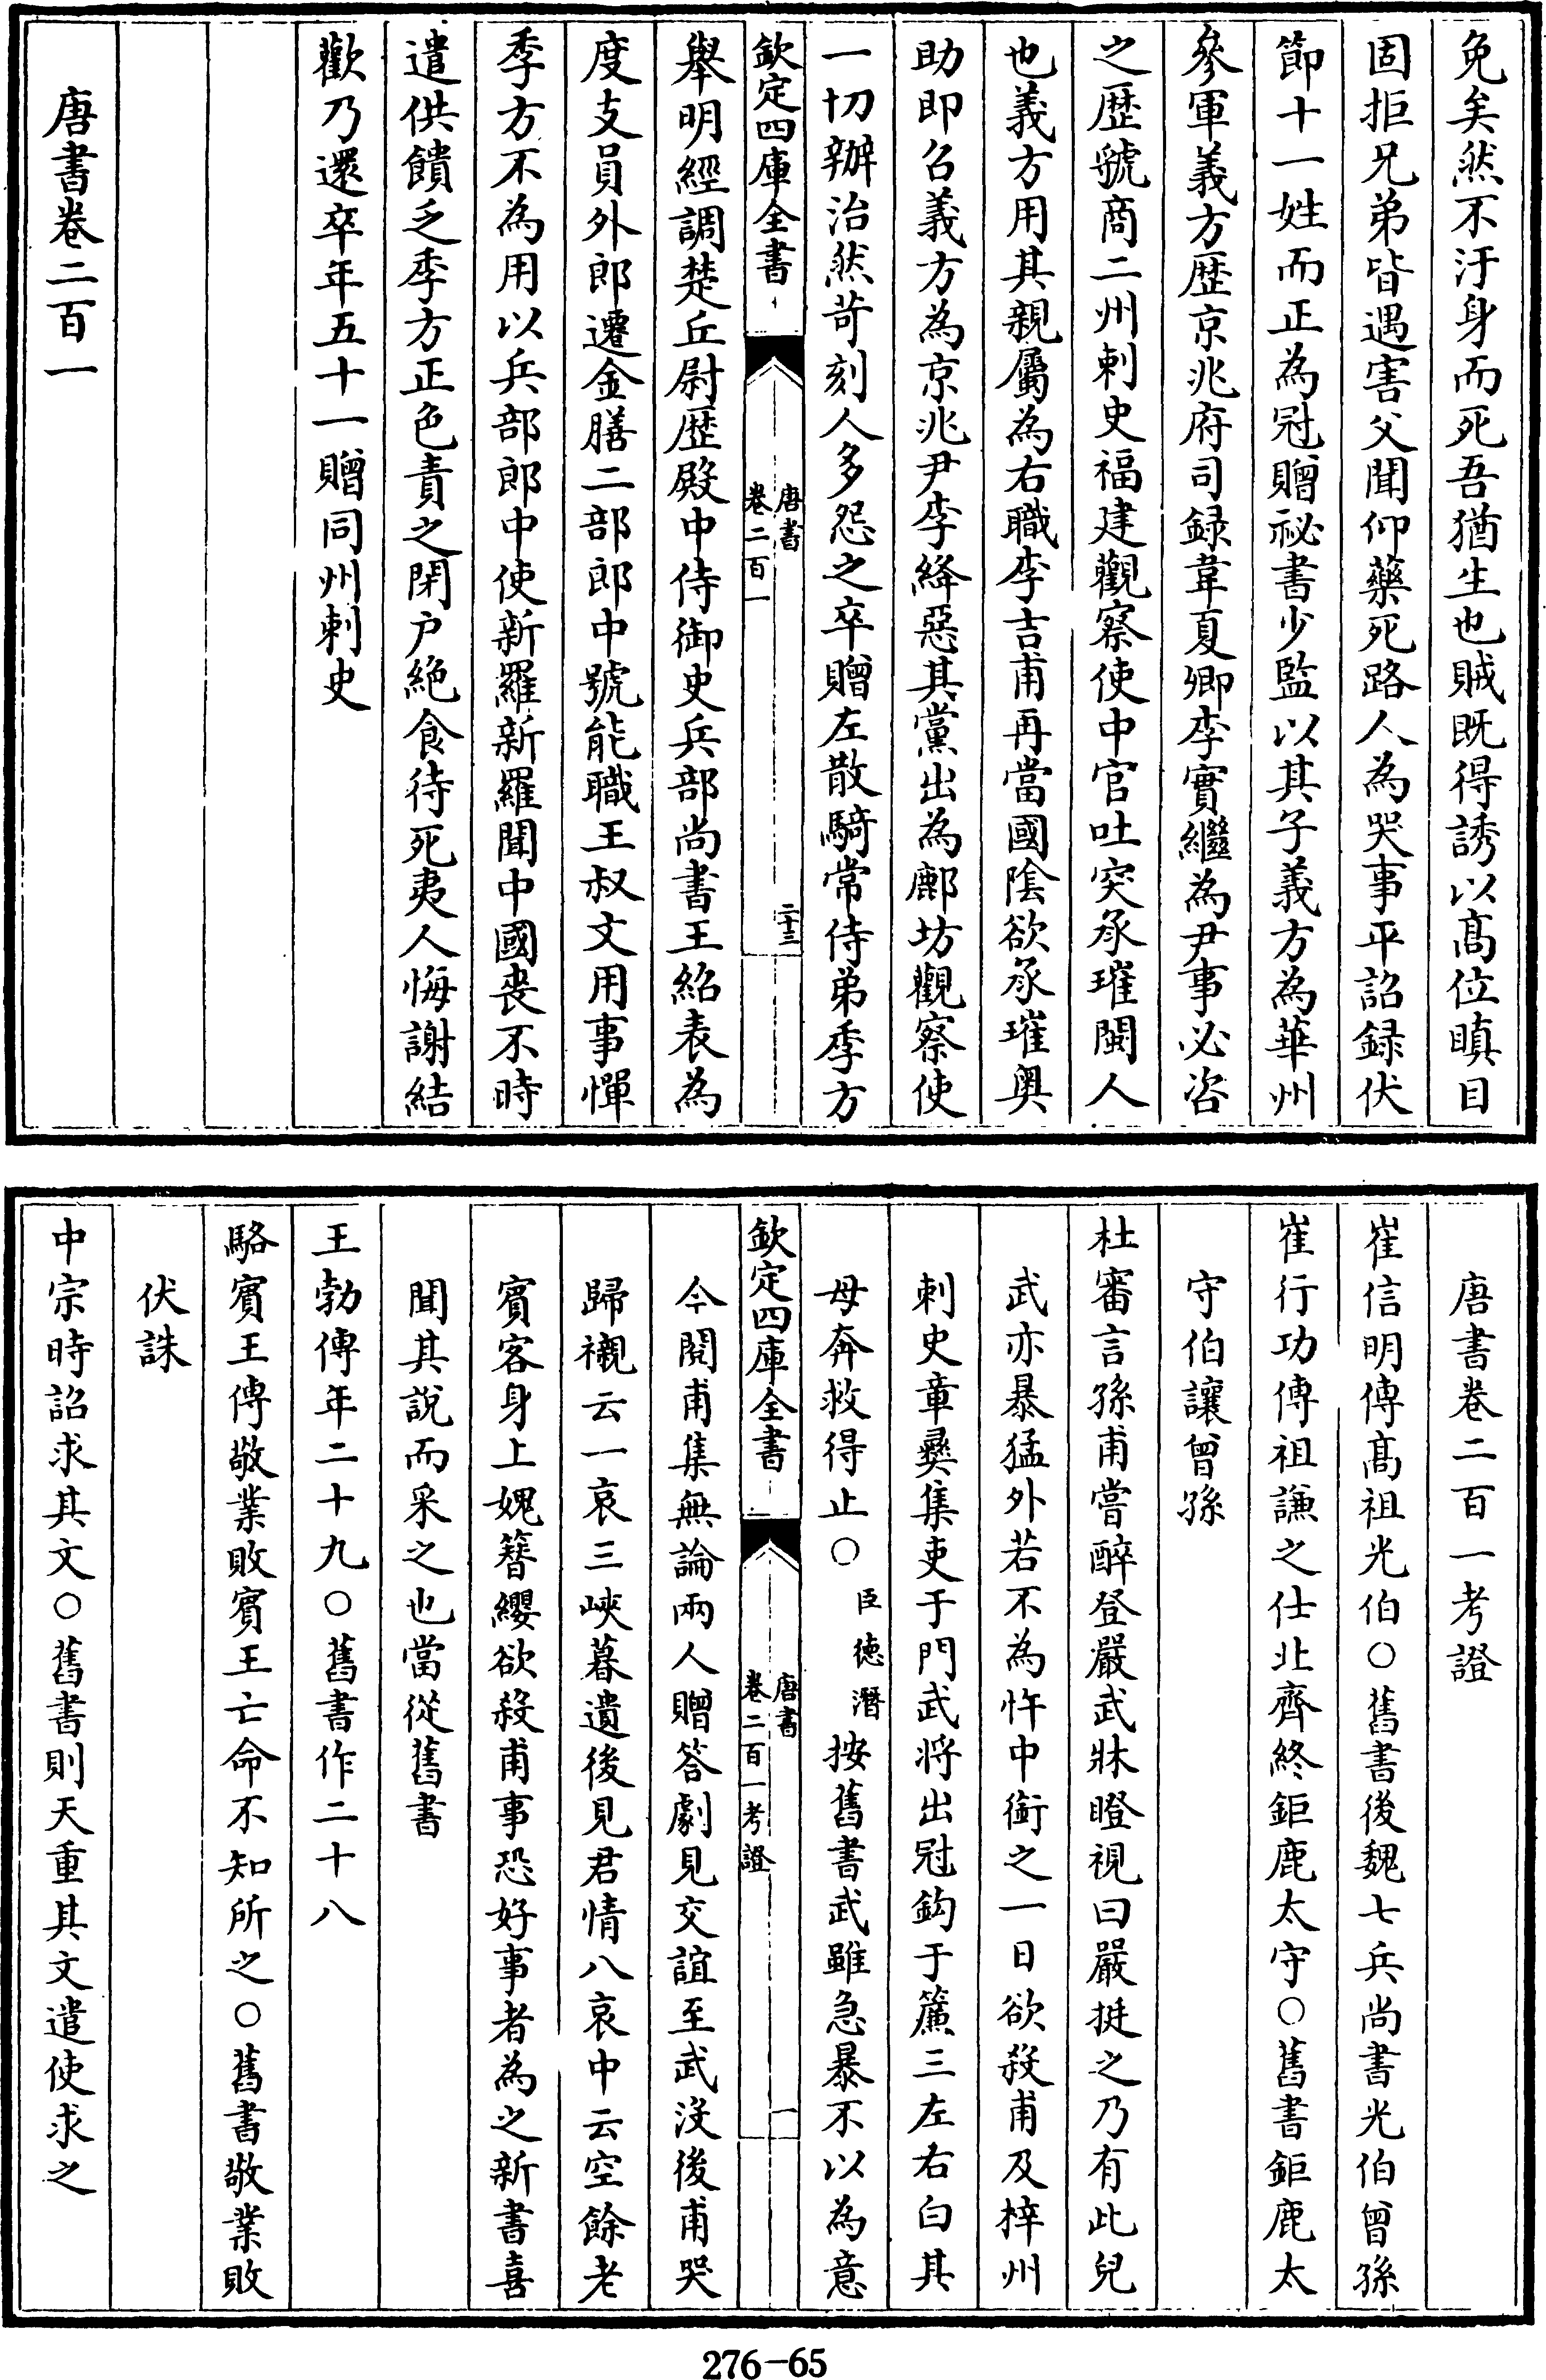 免矣然不汙身而死吾猶生也賊既得誘以髙位瞋目
固拒兄弟皆遇害父聞仰藥死路人為哭事平詔録伏
節十一姓而正為冠贈祕書少監以其子義方為華州
參軍義方歴京兆府司録韋夏卿李實繼為尹事必咨
之歴虢商二州刺史福建觀察使中官吐突承璀閩人
也義方用其親屬為右職李吉甫再當國隂欲承璀奥
助即召義方為京兆尹李絳惡其黨出為鄜坊觀察使
一切辦治然苛刻人多怨之卒贈左散騎常侍弟季方
欽定四庫全書
唐書
卷二百一
二十三
舉明經調楚丘尉歴殿中侍御史兵部尚書王紹表為
度支員外郎遷金膳二部郎中號能職王叔文用事憚
季方不為用以兵部郎中使新羅新羅聞中國喪不時
遣供饋乏季方正色責之閉户絶食待死夷人悔謝結
歡乃還卒年五十一贈同州刺史
唐書卷二百一
唐書卷二百一考證
崔信明傳髙祖光伯○舊書後魏七兵尚書光伯曾孫
崔行功傳祖謙之仕北齊終鉅鹿太守○舊書鉅鹿太
守伯讓曾孫
杜審言孫甫嘗醉登嚴武牀瞪視曰嚴挺之乃有此兒
武亦暴猛外若不為忤中銜之一日欲殺甫及梓州
刺史章彝集吏于門武将出冠鈎于簾三左右白其
母奔救得止○臣德潛按舊書武雖急暴不以為意
欽定四庫全書
唐書
卷二百一考證
一
今閱甫集無論兩人贈答劇見交誼至武沒後甫哭
歸櫬云一哀三峽暮遺後見君情八哀中云空餘老
賓客身上媿簪纓欲殺甫事恐好事者為之新書喜
聞其説而采之也當從舊書
王勃傳年二十九○舊書作二十八
駱賓王傳敬業敗賓王亡命不知所之○舊書敬業敗
伏誅
中宗時詔求其文○舊書則天重其文遣使求之
276-65